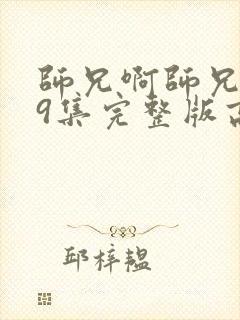 師兄啊師兄
9集完整版高
邱梓韞